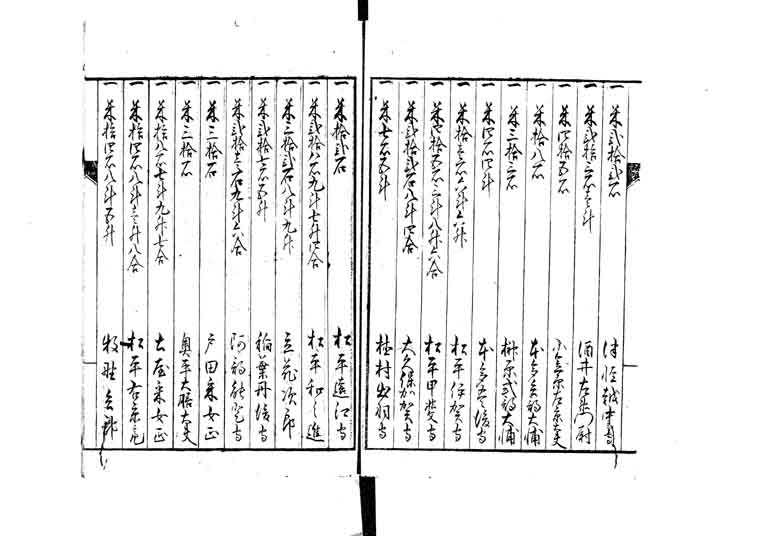 一 米弐拾弐石 津軽越中守
一 米弐拾三石壱斗 酒井左衛門尉
一 米四拾五石 小笠原左京大夫
一 米拾八石 本多兵部大輔
一 米三拾三石 榊原式部大輔
一 米四石四斗 本多豊後守
一 米拾壱石六斗六升 松平伊賀守
一 米四拾五石三斗八升六合 松平甲斐守
一 米弐拾弐石八斗四合 大久保加賀守
一 米七石五斗 植村出羽守
一 米拾弐石 松平遠江守
一 米弐拾八石九斗七升四合 松平和之進
一 米三拾弐石八斗九升 立花次郎
一 米弐拾七石五斗 稲葉丹後守
一 米弐拾壱石九斗六合 阿部能登守
一 米三拾石 戸田采女正
一 米三拾石 奥平大膳大夫
一 米拾八石七斗九升七合 土屋采女正
一 米拾四石八斗三升八合 松平右京亮
一 米拾四石八斗五升 牧野